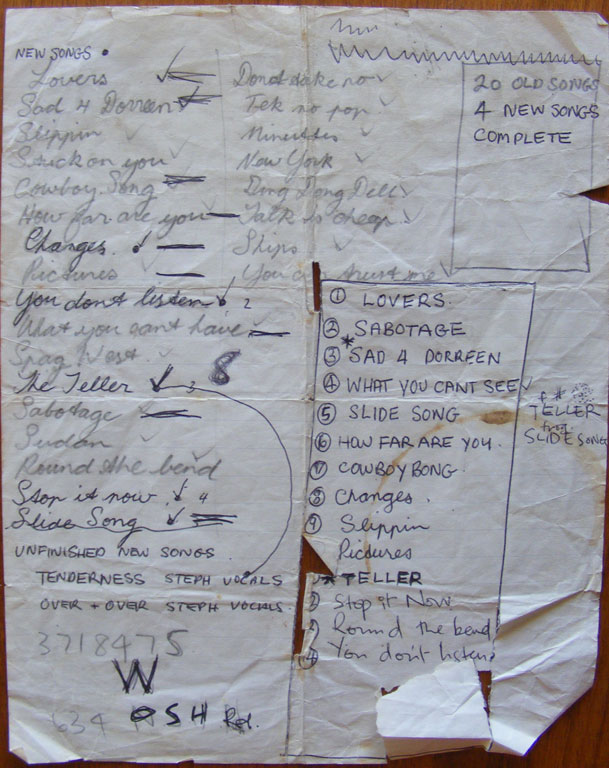 NEW SONGS
Lovers
Sad 4 Dorreen
Slippin
Stuck on you
Cowboy Song
How far are you
Changes.
Pictures
You dont listen 2
What you cant have
Spag West.
The Teller 3
8
Sabotage
Sudan
Round the bend
Stop it now. 4
Slide Song
UNFINISHED NEW SONGS
TENDERNESS STEPH VOCALS
OVER + OVER STEPH VOCALS.
3718475
W
OSH Rd.
634
Donddake no
Tek no pop.
Minutes
New York
Ding Dong Dell
Talk is cheap
Ships
You can trust me
20 OLD SONGS
4 NEW SONGS
COMPLETE
① LOVERS.
② SABOTAGE
③ * SAD 4 DORREEN
④ WHAT YOU CANT SEE
⑤ SLIDE SONG
⑥ HOW FAR ARE YOU.
⑦ COWBOY BONG.
⑧ Changes.
⑨ Slippin
Pictures
* TELLER
Stop it Now
Round the bend
④ You don't listen
TELLER
from
SLIDE SONG